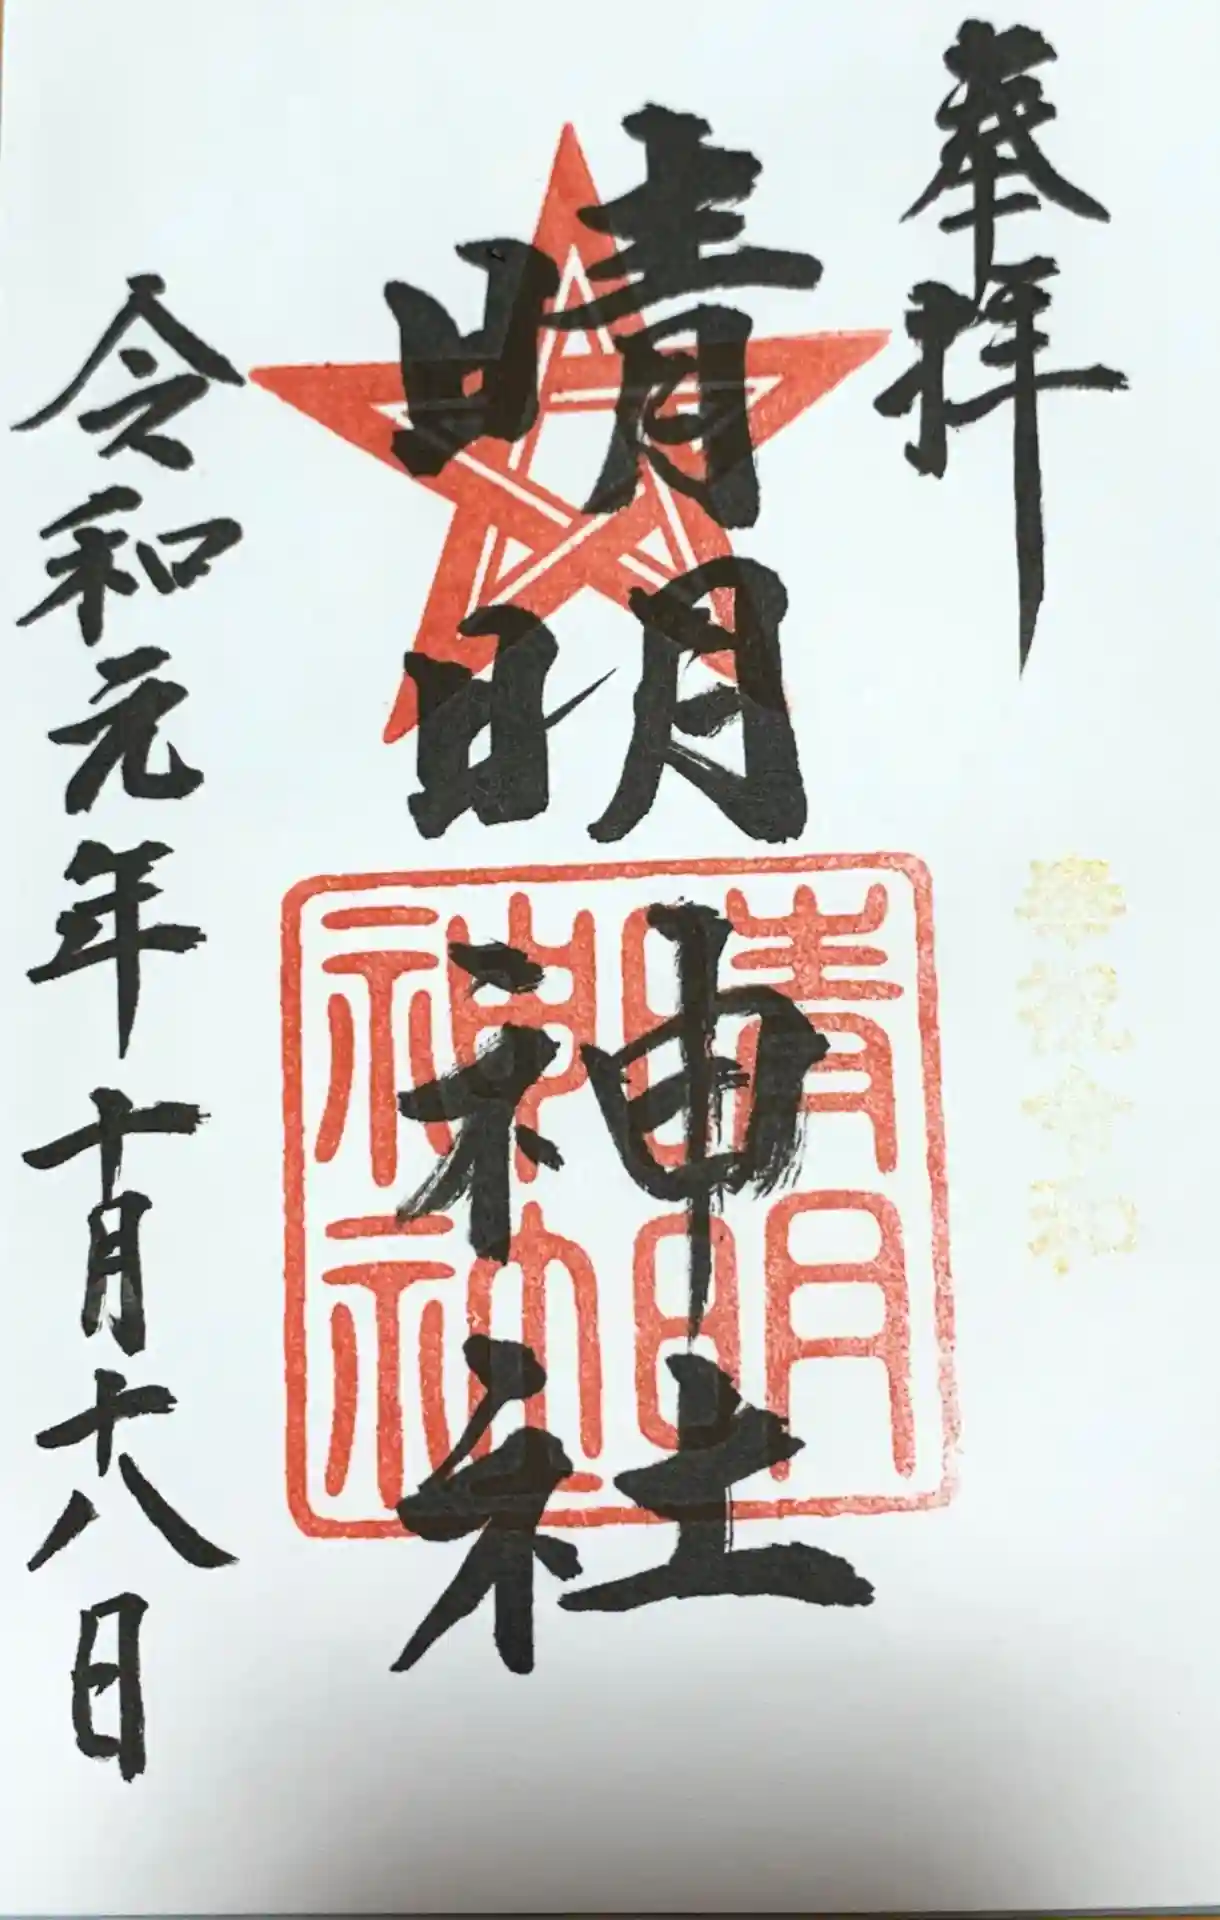 奉拝
奉祝令和
晴明神社
晴明神社
令和元年十月十八日